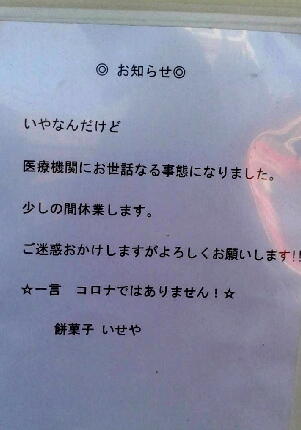 ◎ お知らせ◎
いやなんだけど
医療機関にお世話なる事態になりました。
少しの間休業します。
ご迷惑おかけしますがよろしくお願いします!!
☆一言 コロナではありません！☆
餅菓子 いせや